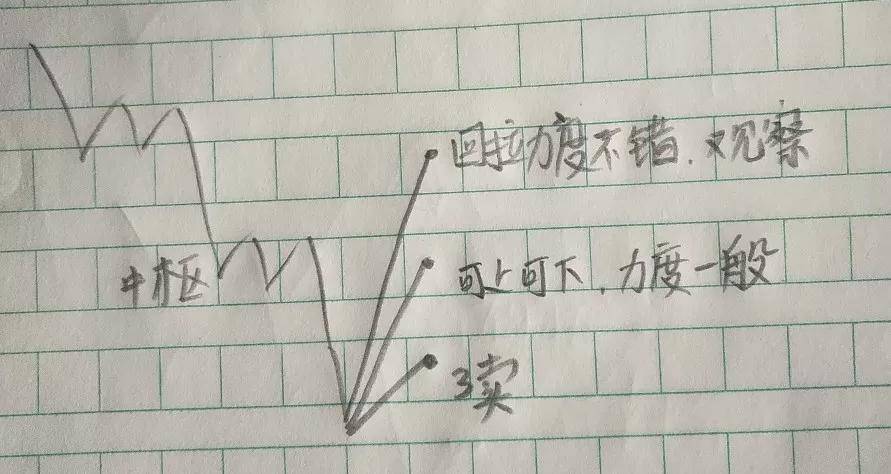 回拉力度不错.观察
中枢
可上可下.力度一般
3卖